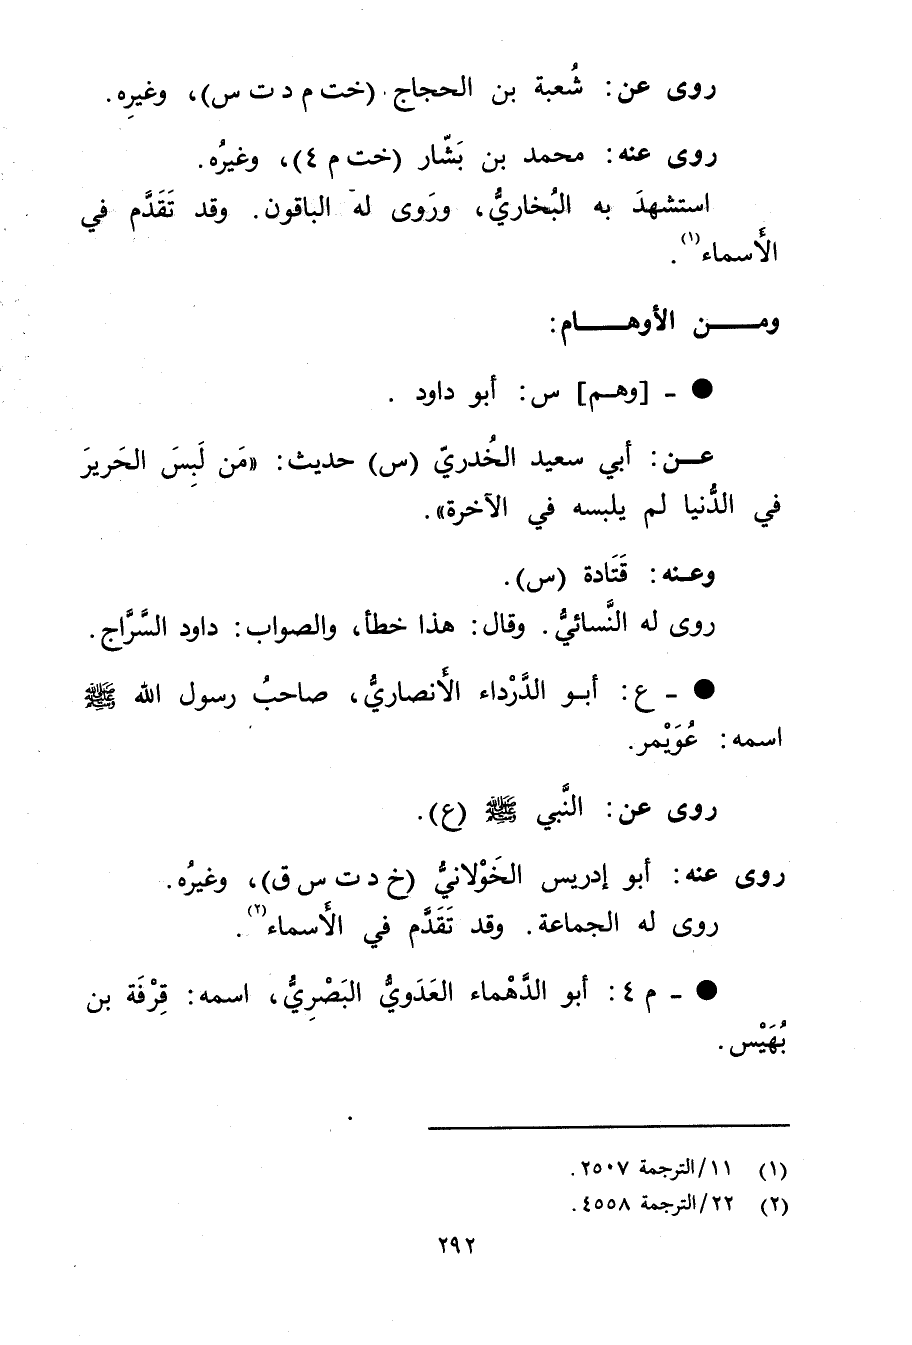 روى عن: شُعبة بن الحجاج (خت م د ت س)، وغيرِه.
روى عنه: محمد بن بَشّار (خت م ٤)، وغيرُه.
استشهدَ به البُخاريُّ، ورَوى له الباقون. وقد تَقَدَّم في
الأَسماء(١).
ومـــن الأوهــــام:
● ـ [وهـم] س: أبو داود .
عــن: أبي سعيد الخُدريّ (س) حديث: «مَن لَبِسَ الحَريرَ
في الدُّنيا لم يلبسه في الآخرة».
وعـنه: قَتَادة (س).
روى له النَّسائيُّ. وقال: هذا خطأ، والصواب: داود السَّرَّاج.
● ـ ع: أبـو الدَّرْداء الأَنصاريُّ، صاحبُ رسول الله ﷺ
اسمه: عُوَيْمر.
روى عن: النَّبي ﷺ (ع).
روى عنه: أبو إدريس الخَوْلانيُّ (خ د ت س ق)، وغيرُه.
روى له الجماعة. وقد تَقَدَّم في الأَسماء(٢).
● ـ م ٤: أبو الدَّهْماء العَدَويُّ البَصْرِيُّ، اسمه: قِرْفَة بن
بُهَيْس.
(١) ١١/الترجمة ٢٥٠٧.
(٢) ٢٢/الترجمة ٤٥٥٨.
٢٩٢